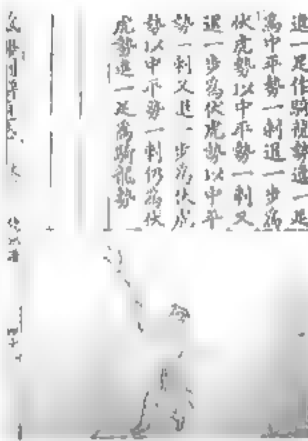 進一足作騎龍勢進一足
爲中平勢一刺退一步爲
伏虎勢以中平勢一刺又
退一步爲伏虎勢以中平
勢一刺又進一步爲伏虎
勢以中平勢一刺仍爲伏
虎勢進一足爲騎龍勢